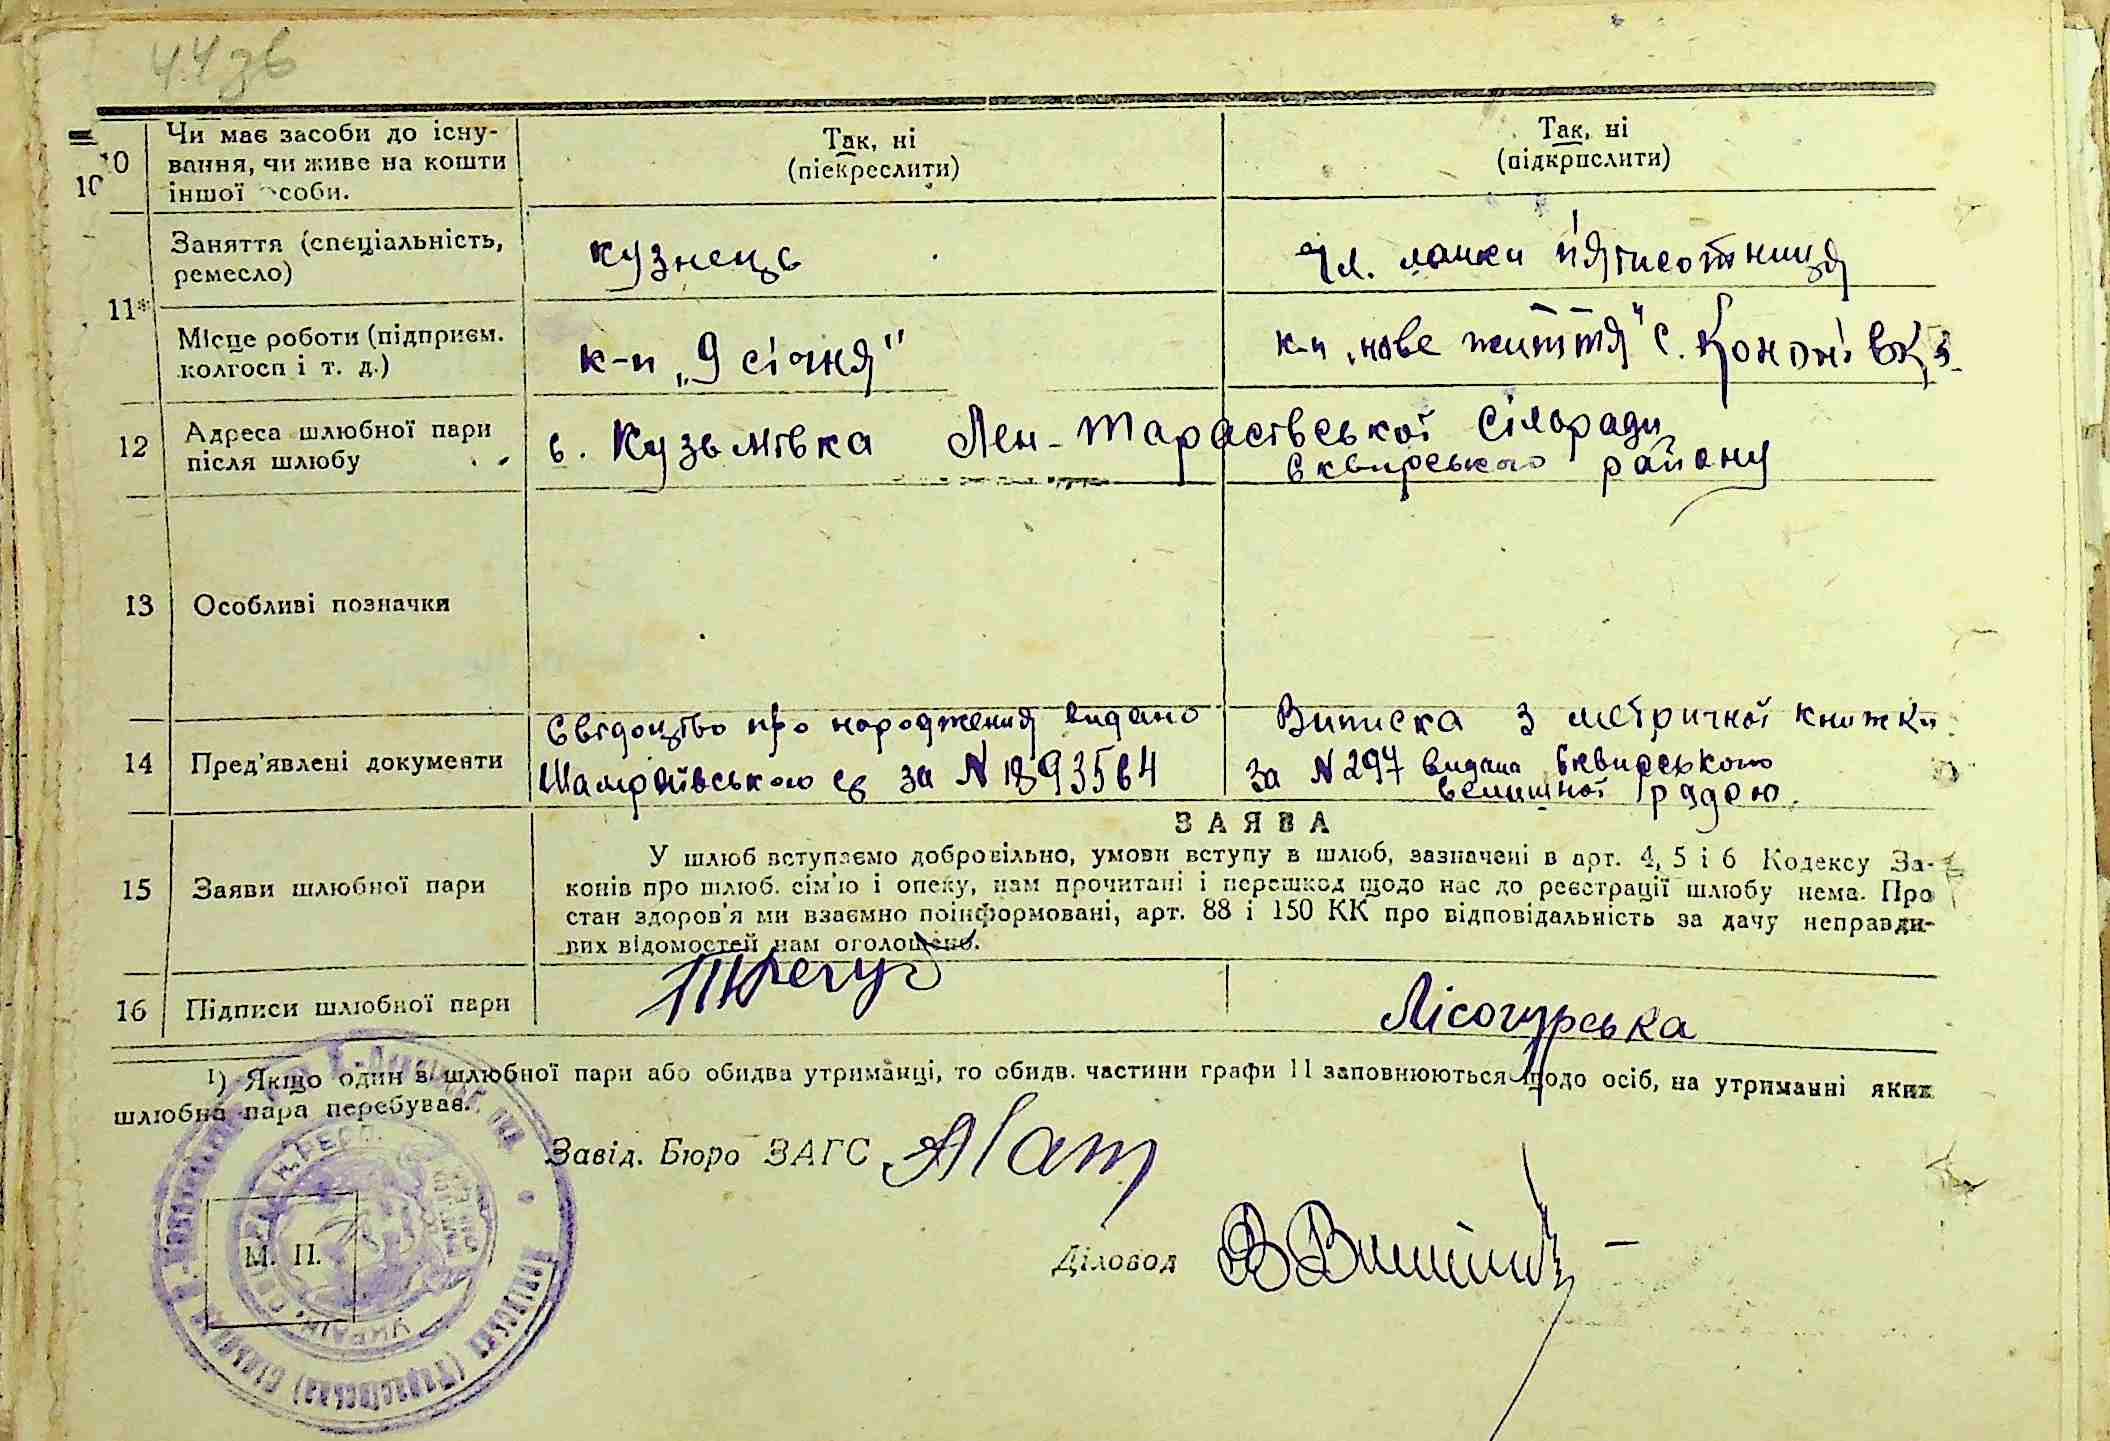 44 зв
10
10
Чи має засоби до існу-
вання, чи живе на кошти
іншої особи.
Так, ні
(піекреслити)
Так, ні
(підкрпслити)
11*
Заняття (спеціальність,
ремесло)
кузнець
Чл. ланки п'ятисотниця
Місце роботи (підприєм.
колгосп і т. д.)
к-п „9 січня"
к-п „нове життя" с.
12
Адреса шлюбної пари
після шлюбу
с. Кузьмівка Лен-Тарасівської сілради
Сквирського району
13
Особливі позначки
14
Пред'явлені документи
Свідоцтво про народження видано
за N 1893564
Виписка з метричної книжки
за N 297 видана Сквирського
селищної радою.
ЗАЯВА
15
Заяви шлюбної пари
У шлюб вступаємо добровільно, умови вступу в шлюб, зазначені в арт. 4, 5 і 6 Кодексу За-
конів про шлюб. сім'ю і опеку, нам прочитані і перешкод щодо нас до реєстрації шлюбу нема. Про
стан здоров'я ми взаємно поінформовані, арт. 88 і 150 КК про відповідальність за дачу неправди-
вих відомостей нам оголошено.
16
Підписи шлюбної пари
Трегуб
Лісогурська
1) Якщо один в шлюбної пари або обидва утриманці, то обидв. частини графи 11 заповнюються щодо осіб, на утриманні яких
шлюбна пара перебуває.
Завід. Бюро ЗАГС
Діловод
М. П.